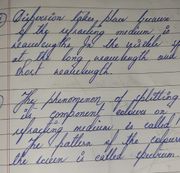 Dispersion takes place because
of the refracting medium is
wavelengths in the visible
at the long wavelength and
short wavelength.
The phenomenon of splitting
its component colours on
refracting medium is called
The pattern of the colours
the screen is called spectrum.